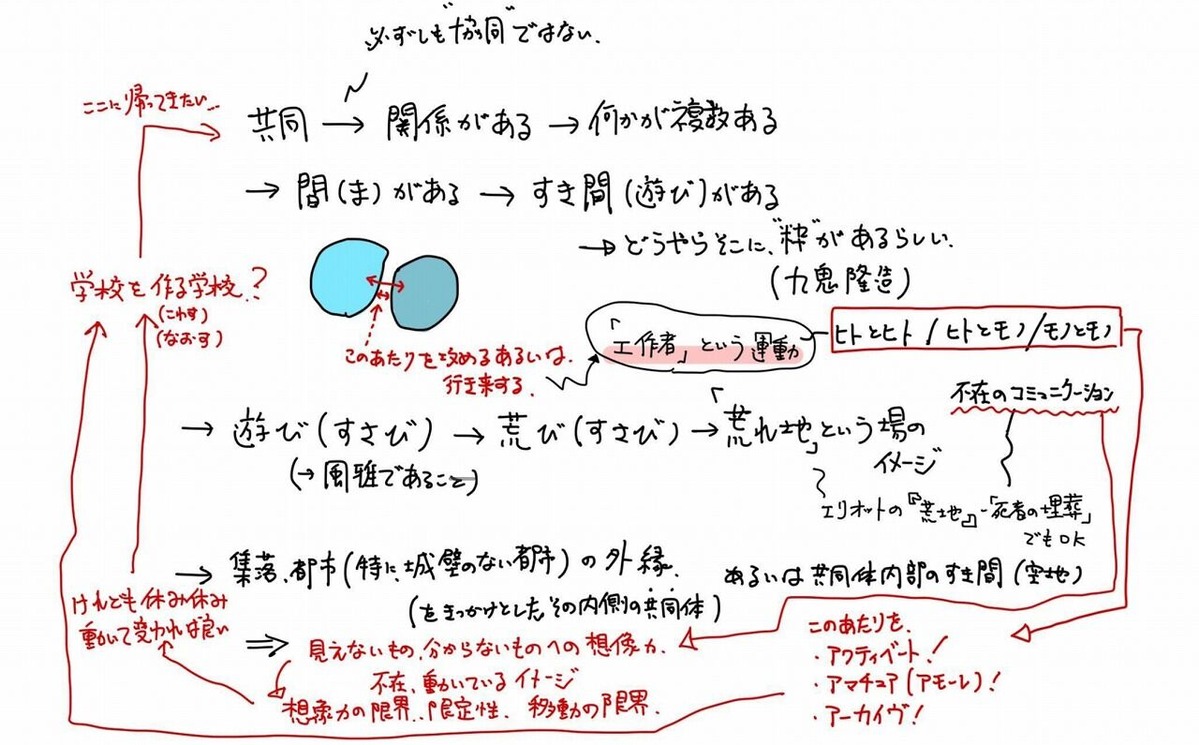 必ずしも"協同"ではない.
ここに帰ってきたい…
共同 → 関係がある → 何かが複数ある
→ 間(ま)がある → すき間(遊び)がある
→ どうやらそこに、"粋"があるらしい.
(九鬼隆造)
学校を作る学校?
(こわす)
(なおす)
このあたりを攻めるあるいは.
行き来する.
「工作者」という運動
ヒトとヒト / ヒトとモノ / モノとモノ
不在のコミュニケーション
→ 遊び(すさび) → 荒び(すさび) → 「荒れ地」という場の
イメージ
(→ 風雅であること)
エリオットの『荒地』-「死者の埋葬」
でもOK
→ 集落、都市(特に、城壁のない都市)の外縁.
あるいは共同体内部のすき間(空地)
(をきっかけとした、その内側の共同体)
けれども休み休み
動いて変われば良い
⇒ 見えないもの、分からないものへの想像力.
不在、動いているイメージ
想像力の限界、限定性、移動の限界.
このあたりを、
・アクティベート!
・アマチュア(アモーレ)!
・アーカイヴ!